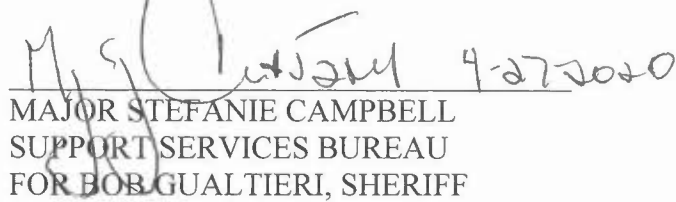 4-27-2020
MAJOR STEFANIE CAMPBELL
SUPPORT SERVICES BUREAU
FOR BOB GUALTIERI, SHERIFF